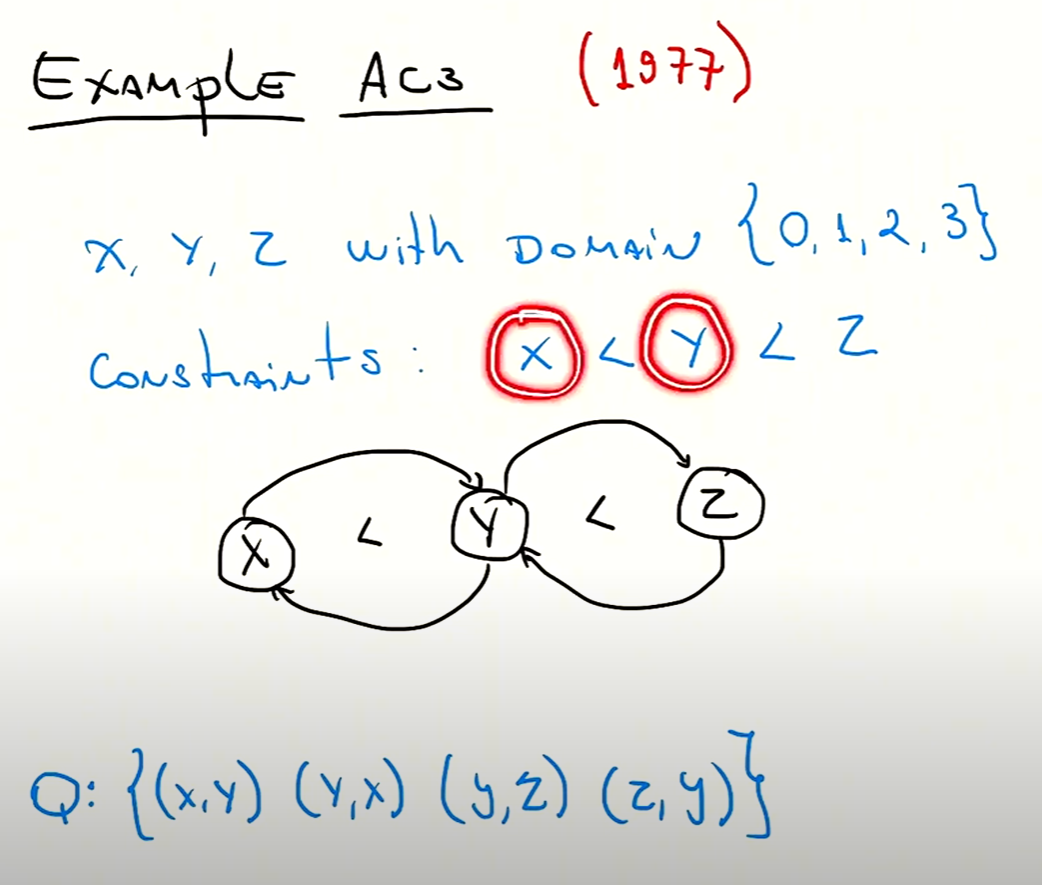 EXAMPLE AC3 (1977)
X, Y, Z with DOMAIN {0, 1, 2, 3}
Constraints: X < Y < Z
X < Y < Z
Q: {(X,Y) (Y,X) (y,Z) (z,y)}